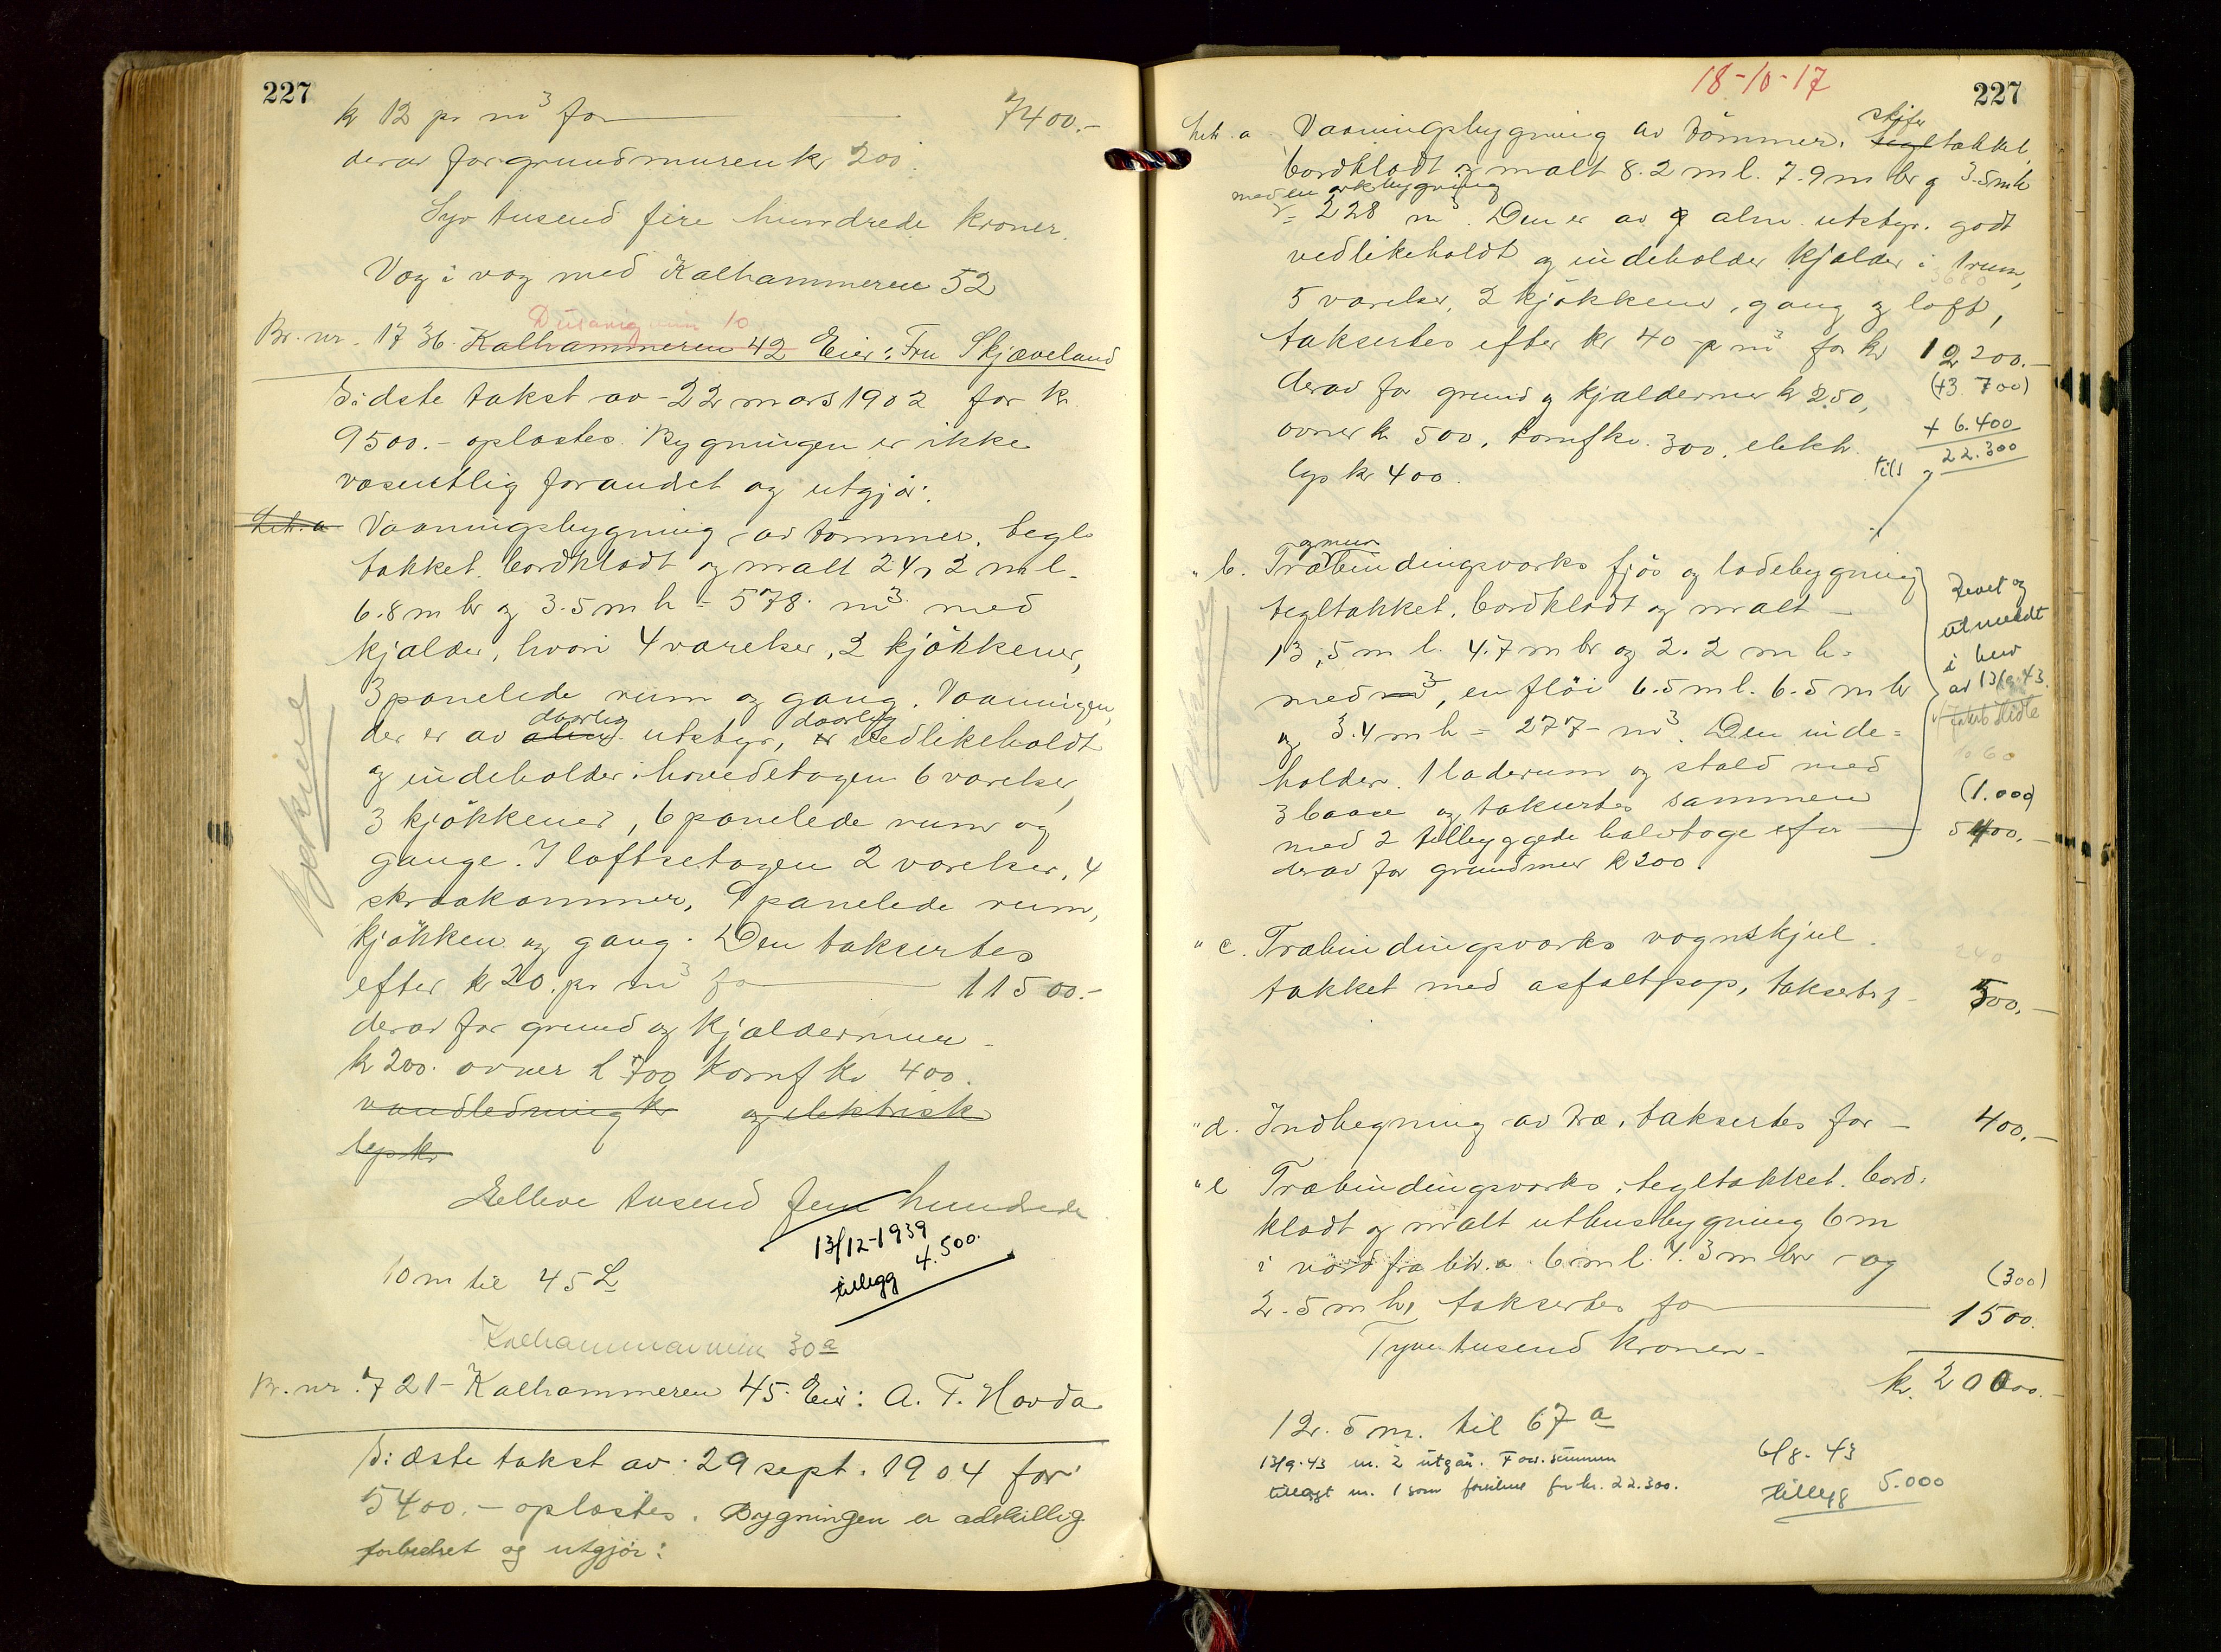 227
kr 12 pr m³ for 7400.-
derav for grundmuren kr 200.
Syv tusend fire hundrede kroner.
Væg i væg med Kalhammeren 52
10
Br. nr. 1736. Kalhammeren 42 Eier: Fru Skjæveland
Sidste takst av 22 mars 1902 for kr
9500.- oplæstes. Bygningen er ikke
væsentlig forandret og utgjør:
Litr. a Vaaningsbygning av tømmer, tegl-
tækket, bordklædt og malt 24,2 m l.
6.8 m br og 3.5 m h = 578 m³ med
kjælder, hvori 4 værelser, 2 kjøkkener,
3 panelede rum og gang. Vaaningen,
daarlig daarlig
der er av alm. utstyr, er vedlikeholdt
og indeholder i hovedetagen 6 værelser,
3 kjøkkener, 6 panelede rum og
gange. I loftsetagen 2 værelser, 4
skraakammer, 9 panelede rum,
kjøkken og gang. Den taksertes
efter kr 20. pr m³ for 11500.-
derav for grund og kjældermur
kr 200. ovner kr 700 komf kr 400.
vandledning kr og elektrisk
lys kr
Elleve tusend fem hundrede
13/12-1939
tillegg 4.500.
10 m til 45 L
Kalhammarveien 30a
Br. nr. 721 - Kalhammeren 45. Eier: A. T. Hovda
Sidste takst av 29 sept. 1904 for
5400.- oplæstes. Bygningen er adskillig
forbedret og utgjør:
18-10-17
227
skifer
Litr. a Vaaningsbygning av tømmer, tegltækket,
bordklædt og malt 8.2 m l. 7.9 m br og 3.5 m h
med en arkbygning
= 228 m³. Den er av g alm. utstyr, godt
vedlikeholdt og indeholder kjælder i 1 rum,
3680
5 værelser, 2 kjøkkener, gang og loft,
taksertes efter kr 40 pr m³ for kr 12200.-
(+3.700)
derav for grund og kjældermur kr 250,
+ 6.400
ovner kr 500, komf kr. 300, elektr.
22.300
lys kr 400.
tils
og mur
" b. Træbindingsverks fjøs og ladebygning
tegltækket, bordklædt og malt
13,5 m l. 4.7 m br og 2.2 m h.
med m³, en fløi 6.5 m l. 6.5 m br
og 3.4 m h = 277 m³. Den inde-
holder 1 laderum og stald med
3 baase og taksertes sammen
med 2 tilbyggede halvtage for 5400.-
derav for grundmur kr 200.
Revet og
utmeldt
i brev
av 13/9.43.
1060
(1.000)
" c. Træbindingsverks vognskjul
240
tækket med asfaltpap, taksertes f 500.-
" d. Indhegning av træ, taksertes for 400.-
" e Træbindingsverks, tegltækket, bord-
klædt og malt uthusbygning 6 m
i nord fra litr. a 6 m l. 4.3 m br og
(300)
2.5 m h, taksertes for 1500.
Tyve tusend kroner.
kr. 20000.-
12.5 m. til 67 a
13/9-43 nr. 2 utgår. Fors. summen
tillagt nr. 1 som for kr. 22.300.
6/8-43
tillegg 5.000